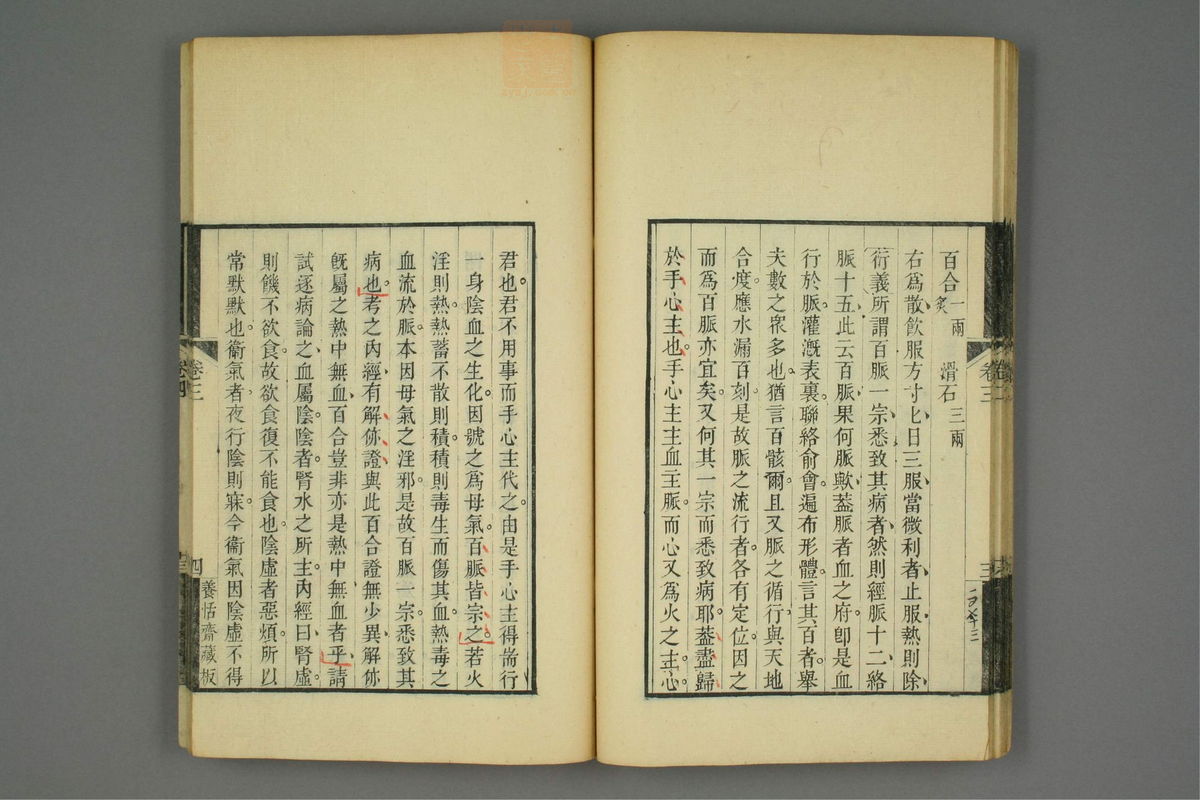 百合一兩炙　滑石三兩
右爲散飲服方寸匕日三服當微利者止服熱則除
衍義所謂百脈一宗悉致其病者然則經脈十二絡
脈十五此云百脈果何脈歟葢脈者血之府卽是血
行於脈灌漑表裏聯絡俞會遍布形體言其百者舉
夫數之衆多也猶言百骸爾且又脈之循行與天地
合度應水漏百刻是故脈之流行者各有定位因之
而爲百脈亦宜矣又何其一宗而悉致病耶葢盡歸
於手心主也手心主主血主脈而心又爲火之主心
卷三
三
君也君不用事而手心主代之由是手心主得耑行
一身陰血之生化因號之爲母氣百脈皆宗之若火
淫則熱熱蓄不散則積積則毒生而傷其血熱毒之
血流於脈本因母氣之淫邪是故百脈一宗悉致其
病也考之內經有解㑊證與此百合證無少異解㑊
旣屬之熱中無血百合豈非亦是熱中無血者乎請
試逐病論之血屬陰陰者腎水之所主內經曰腎虛
則饑不欲食故欲食復不能食也陰虛者惡煩所以
常默默也衞氣者夜行陰則寐今衞氣因陰虛不得
卷三
四
養恬齋藏板
卷四